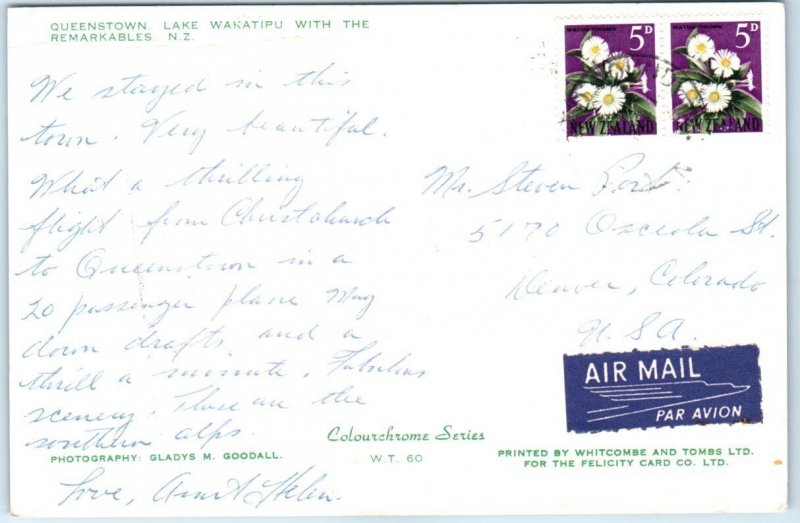 QUEENSTOWN, LAKE WAKATIPU WITH THE
REMARKABLES, N.Z.
We stayed in this
town. Very beautiful.
What a thrilling
flight from Christchurch
to Queenstown in a
20 passenger plane
down drafts and a
thrill a minute. Fabulous
scenery. These are the
southern alps.
Love, Aunt Helen.
Mr. Steven
5170 Osceola St.
Denver, Colorado
U.S.A.
MATUA-TIKUMU
5D
NEW ZEALAND
MATUA-TIKUMU
5D
NEW ZEALAND
AIR MAIL
PAR AVION
PHOTOGRAPHY: GLADYS M. GOODALL.
Colourchrome Series
W.T. 60
PRINTED BY WHITCOMBE AND TOMBS LTD.
FOR THE FELICITY CARD CO. LTD.